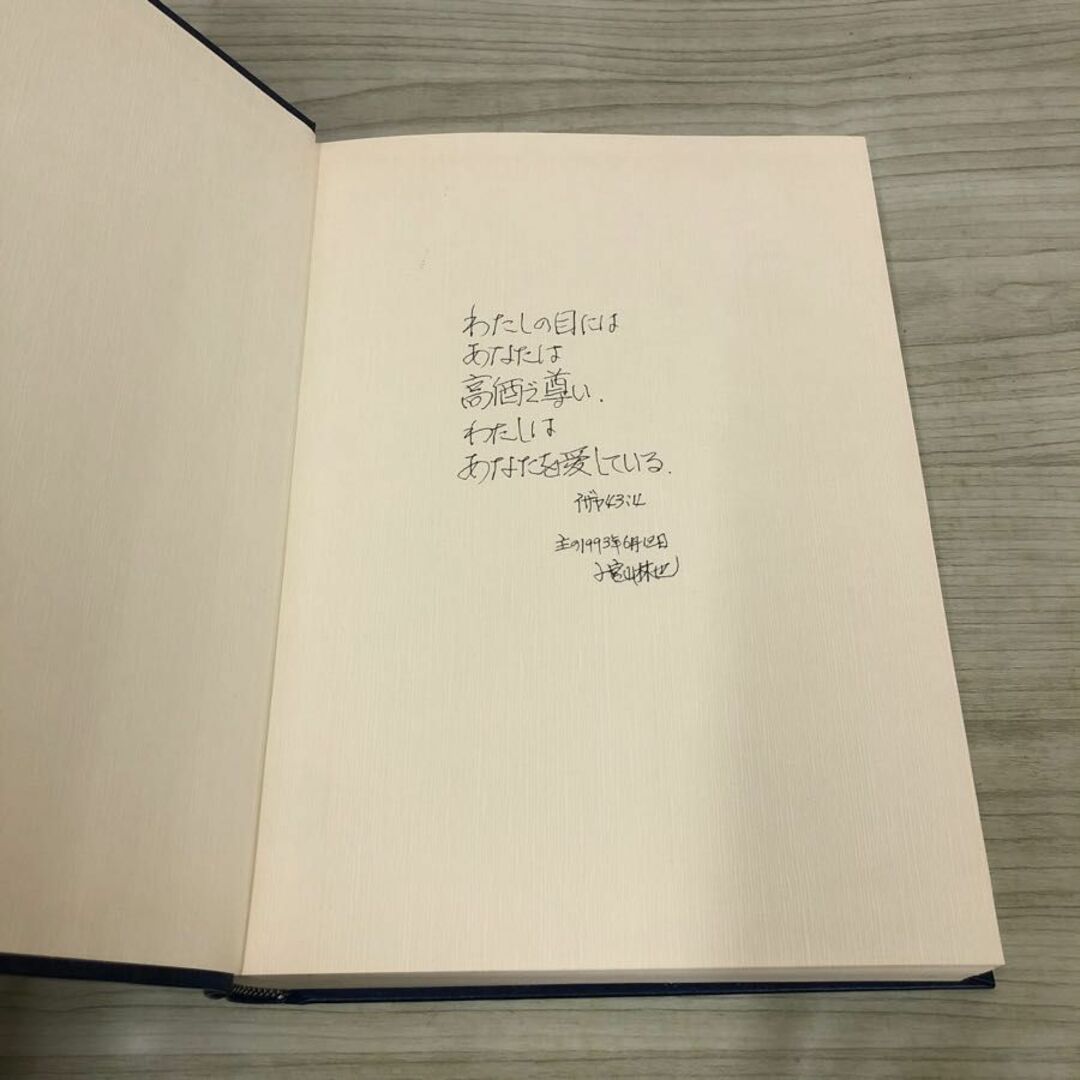 わたしの目には
あなたは
高価で尊い.
わたしは
あなたを愛している.
イザヤ43:4
主の1993年6月12日
小宮山林也